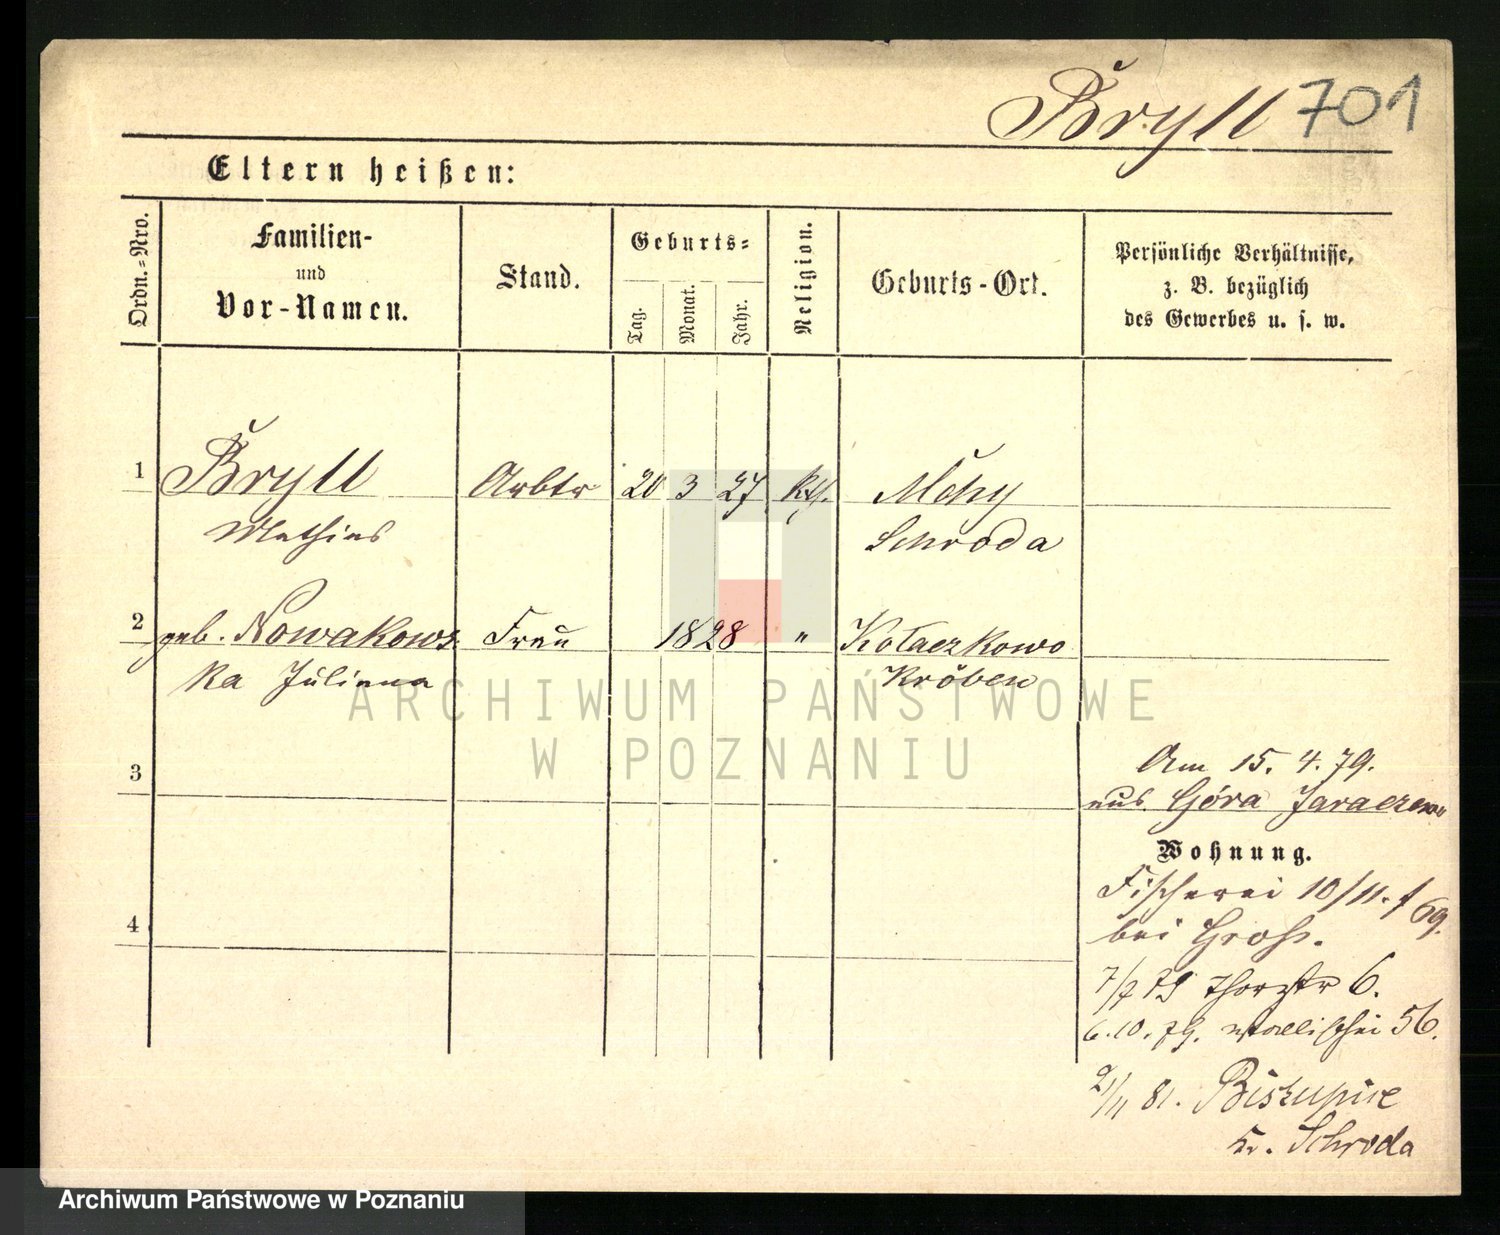 Bryll 701
Eltern heißen:
Ordn.-Nro.
Familien-
und
Vor-Namen.
Stand.
Geburts-
Tag.
Monat.
Jahr.
Religion.
Geburts-Ort.
Persönliche Verhältnisse,
z. B. bezüglich
des Gewerbes u. s. w.
1 Bryll Arbtr 20 3 27 Kth. Mchy
Mathias Schroda
2 geb. Nowakows Frau 1828 " Kołaczkowo
ka Juliana Kröben
ARCHIWUM PAŃSTWOWE
W POZNANIU
3
Am 15. 4. 79.
aus Góra Jaraczewo
Wohnung.
Fischerei 10/11. 69.
4
bei Groß.
7/7 79 Thorstr 6.
6.10.79. Wallischei 56.
2/11 81. Biskupice
Kr. Schroda
Archiwum Państwowe w Poznaniu